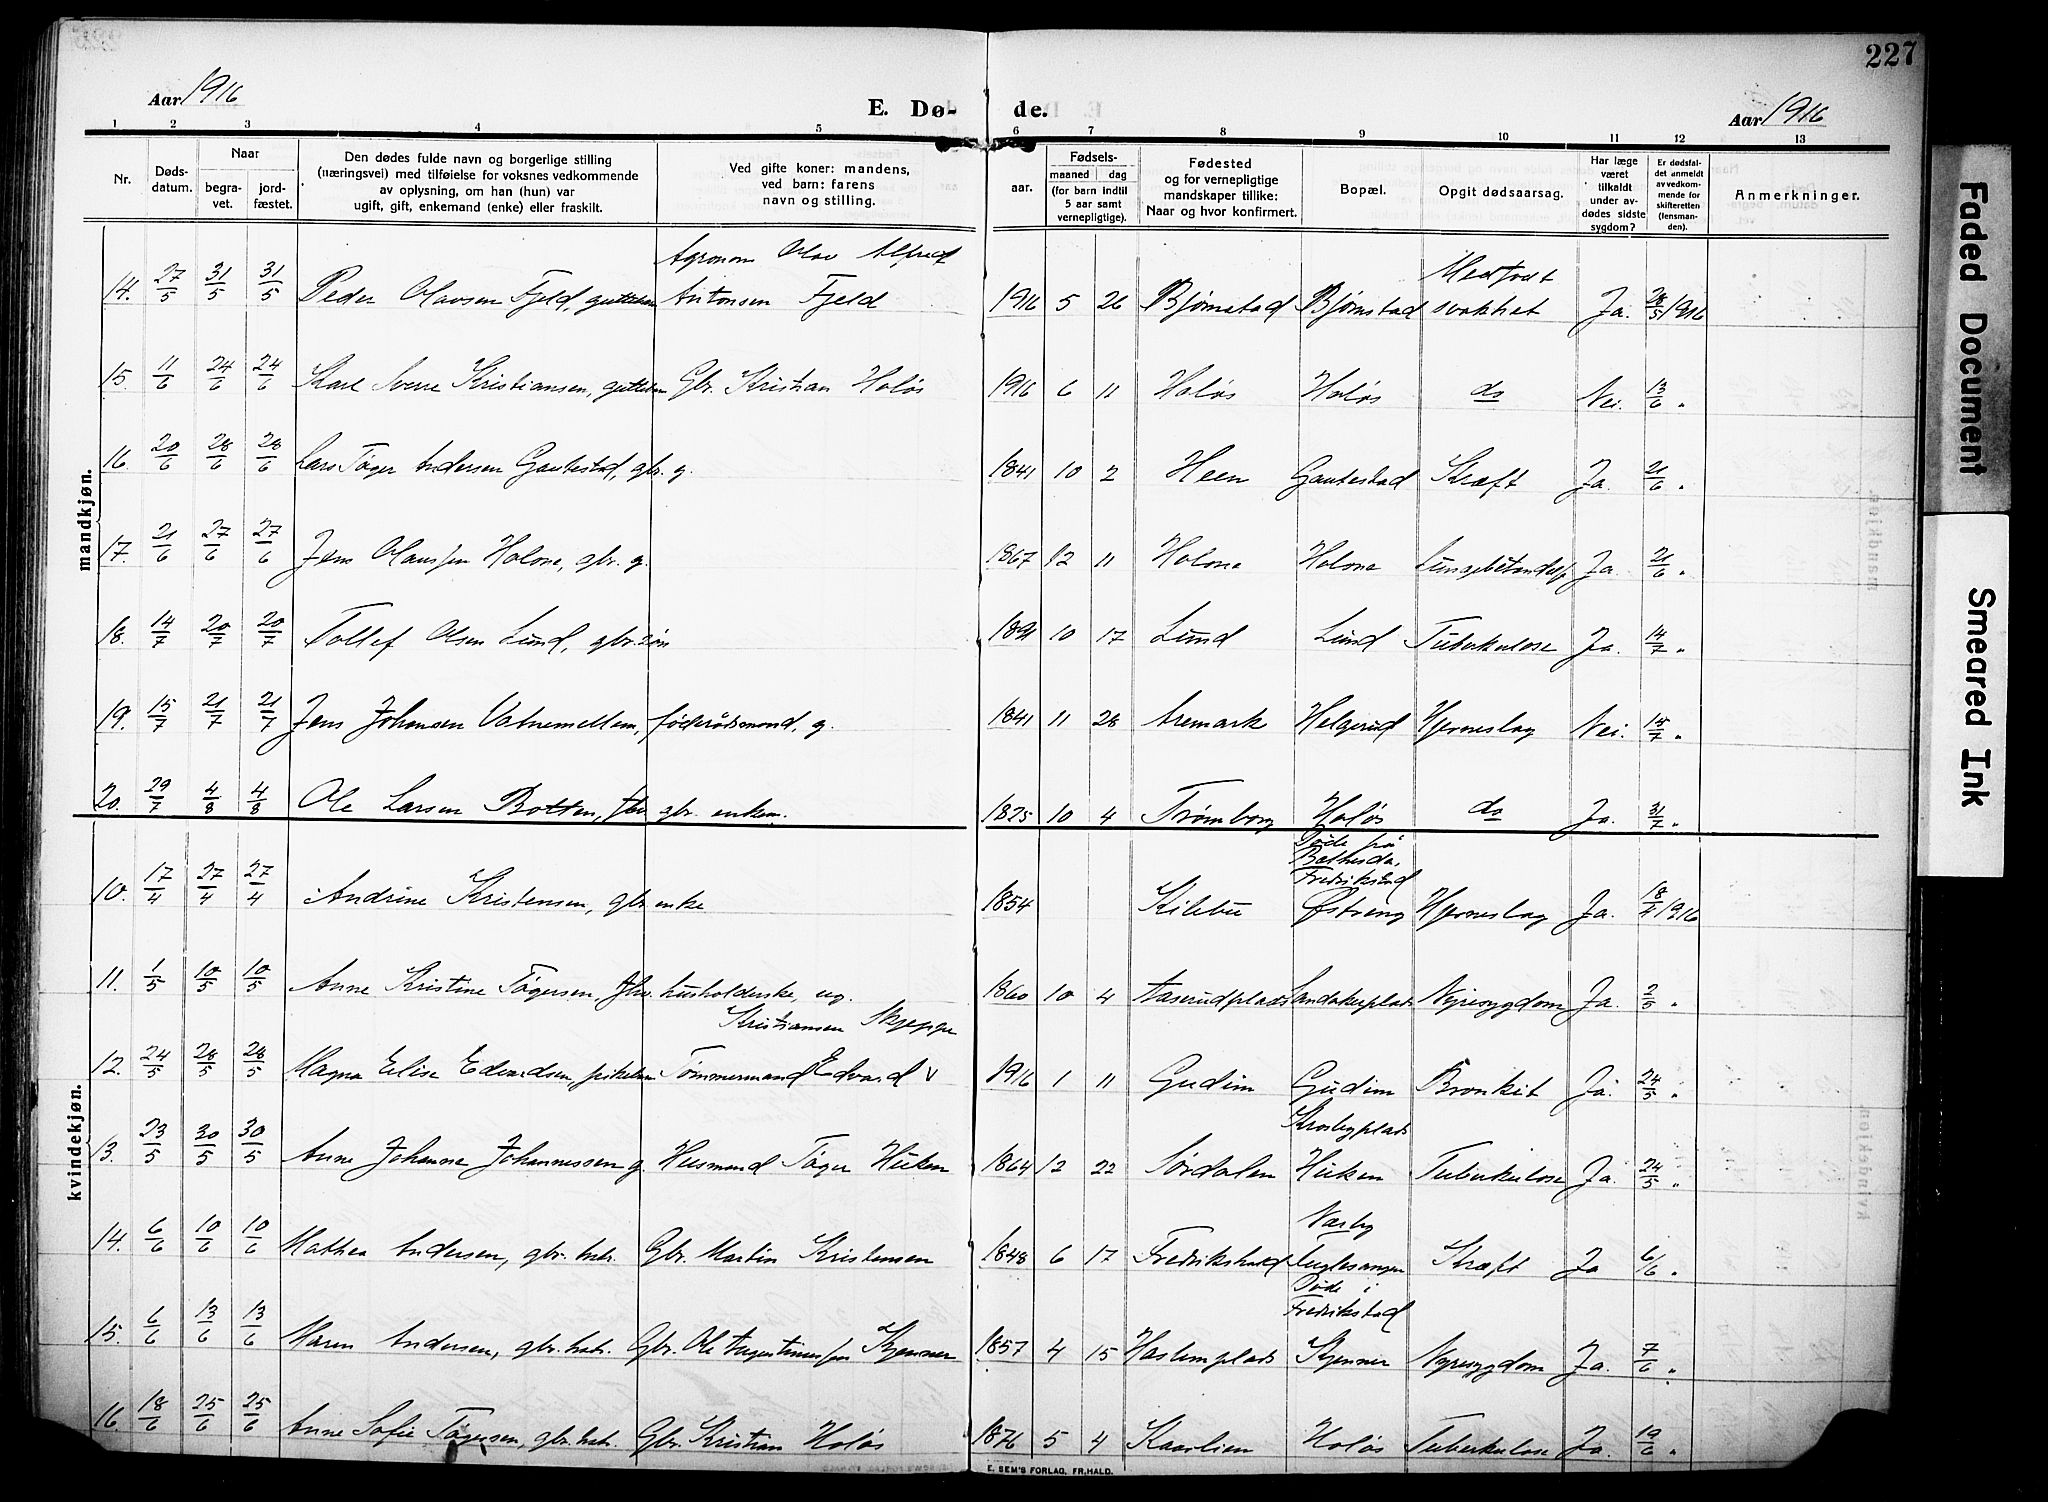 227
Aar 1916
E. Dø- de.
Aar 1916
1 2 3 4 5 6 7 8 9 10 11 12 13
Nr.
Døds-
datum.
Naar
begra-
vet.
jord-
fæstet.
Den dødes fulde navn og borgerlige stilling
(næringsvei) med tilføielse for voksnes vedkommende
av oplysning, om han (hun) var
ugift, gift, enkemand (enke) eller fraskilt.
Ved gifte koner: mandens,
ved barn: farens
navn og stilling.
Fødsels-
aar.
maaned dag
(for barn indtil
5 aar samt
vernepligtige).
Fødested
og for vernepligtige
mandskaper tillike:
Naar og hvor konfirmert.
Bopæl.
Opgit dødsaarsag.
Har læge
været
tilkaldt
under av-
dødes sidste
sygdom?
Er dødsfal-
det anmeldt
av vedkom-
mende for
skifteretten
(lensman-
den).
Anmerkninger.
mandkjøn.
Agronom Olav Alfred Medfødt
14. 27/5 31/5 31/5 Peder Olavsen Fjeld, guttebarn Antonsen Fjeld 1916 5 26 Bjørnstad Bjørnstad svakhet Ja. 28/5 1916
15. 11/6 24/6 24/6 Karl Sverre Kristiansen, guttebarn Gbr. Kristian Holøs 1916 6 11 Holøs Holøs do Nei. 13/6 "
16. 20/6 28/6 28/6 Lars Tøger Andersen Gautestad, gbr. g. 1841 10 2 Heen Gautestad Kræft Ja. 21/6 "
17. 21/6 27/6 27/6 Jens Olaussen Holone, gbr. g. 1867 12 11 Holone Holone Lungebetændelse Ja. 21/6 "
18. 14/7 20/7 20/7 Tollef Olsen Lund, gbr. søn 1891 10 17 Lund Lund Tuberkulose Ja. 14/7 "
19. 15/7 21/7 21/7 Jens Johansen Vatnemellem, føderådsmand, g. 1841 11 28 Aremark Helgerud Hjerneslag Nei. 15/7 "
20. 29/7 4/8 4/8 Ole Larsen Botten, fhv. gbr. enkem. 1825 10 4 Trømborg Holøs do Ja. 31/7 "
kvindekjøn.
Døde på
Bethesda,
Fredrikstad
10. 17/4 27/4 27/4 Andrine Kristensen, gbr. enke 1854 Kilebu Østreng Hjerneslag Ja. 18/4 1916
11. 1/5 10/5 10/5 Anne Kristine Tøgersen, fhv. husholderske, ug. 1860 10 4 Aaserudplads Sandakerplads Nyresygdom Ja. 2/5 "
Kristiansen Skjeppe
12. 24/5 28/5 28/5 Magna Elise Edvardsen, pikebarn Tømmermand Edvard v 1916 1 11 Gudim Gudim Bronkit Ja. 24/5 "
Krosbyplads
13. 23/5 30/5 30/5 Anne Johanne Johannessen g. Husmand Tøger Huken 1864 12 22 Sørdalen Huken Tuberkulose Ja. 24/5 "
Narby
14. 6/6 10/6 10/6 Mathea Andersen, gbr. hstr. Gbr. Martin Kristensen 1848 6 17 Fredrikshald Fuglesangen Kræft Ja 6/6 "
Døde i
Fredrikstad
15. 6/6 13/6 13/6 Maren Andersen, gbr. hstr. Gbr. Ole Augustinussen Kjenner 1857 4 15 Haslemplads Kjenner Nyresygdom Ja. 7/6 "
16. 18/6 25/6 25/6 Anne Sofie Tøgersen, gbr. hstr. Gbr. Kristian Holøs 1876 5 4 Kaarlien Holøs Tuberkulose Ja. 19/6 "
E. SEM'S FORLAG, FR.HALD.
Faded Document
Smeared Ink